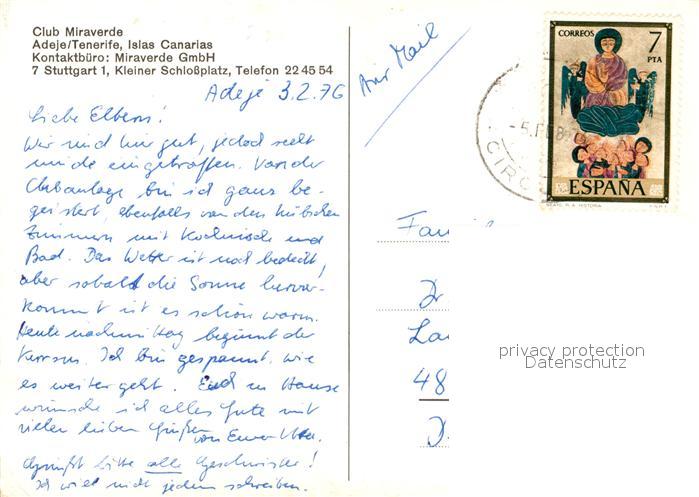 Club Miraverde
Adeje/Tenerife, Islas Canarias
Kontaktbüro: Miraverde GmbH
7 Stuttgart 1, Kleiner Schloßplatz, Telefon 22 45 54
Adeje 3.2.76
Air Mail
CORREOS 7
PTA
ESPAÑA
Liebe Eltern!
Wir sind hier gut, jedoch recht
müde eingetroffen. Von der
Clubanlage bin ich ganz be-
geistert, ebenfalls von den hübschen
Zimmern mit Kochnische und
Bad. Das Wetter ist noch bedeckt,
aber sobald die Sonne hervor-
kommt ist es schön warm.
Heute nachmittag beginnt der
Ich bin gespannt, wie
es weiter geht. Euch zu Hause
wünsche ich alles Gute mit
vielen lieben Grüßen
von Eurer
Grüßt bitte alle Geschwister!
Ich will nicht jedem schreiben.
Fam
Dr
La
48
D
privacy protection
Datenschutz